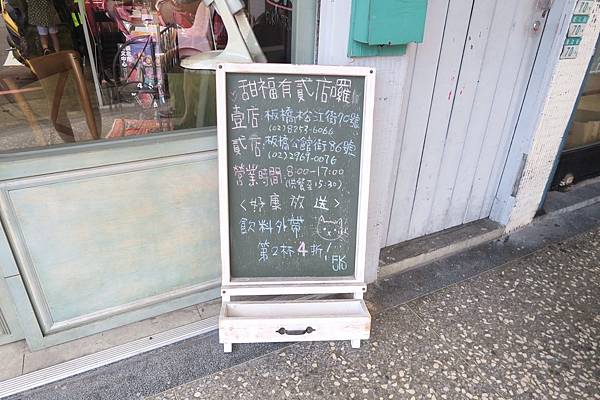 甜福有貳店囉
壹店:板橋松江街90號
(02)8253-6066
貳店:板橋公館街86號
(02)2969-0076
營業時間:8:00-17:00
(供餐至15:30)
<好康放送>
飲料外帶
第2杯4折!